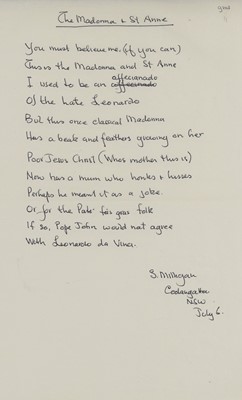 The Madonna & St Anne
You must believe me. (if you can)
This is the Madonna and St Anne
afficianado
I used to be an
Of the late Leonardo
But this once classical Madonna
Has a beak and feathers growing on her
Poor Jesus Christ (Whos mother this is)
Now has a mum who honks & hisses
Perhaps he meant it as a joke.
Or for the Pate fois gras folk
If so, Pope John would not agree
With Leonardo da Vinci.
S. Milligan
NSW.
July 6.